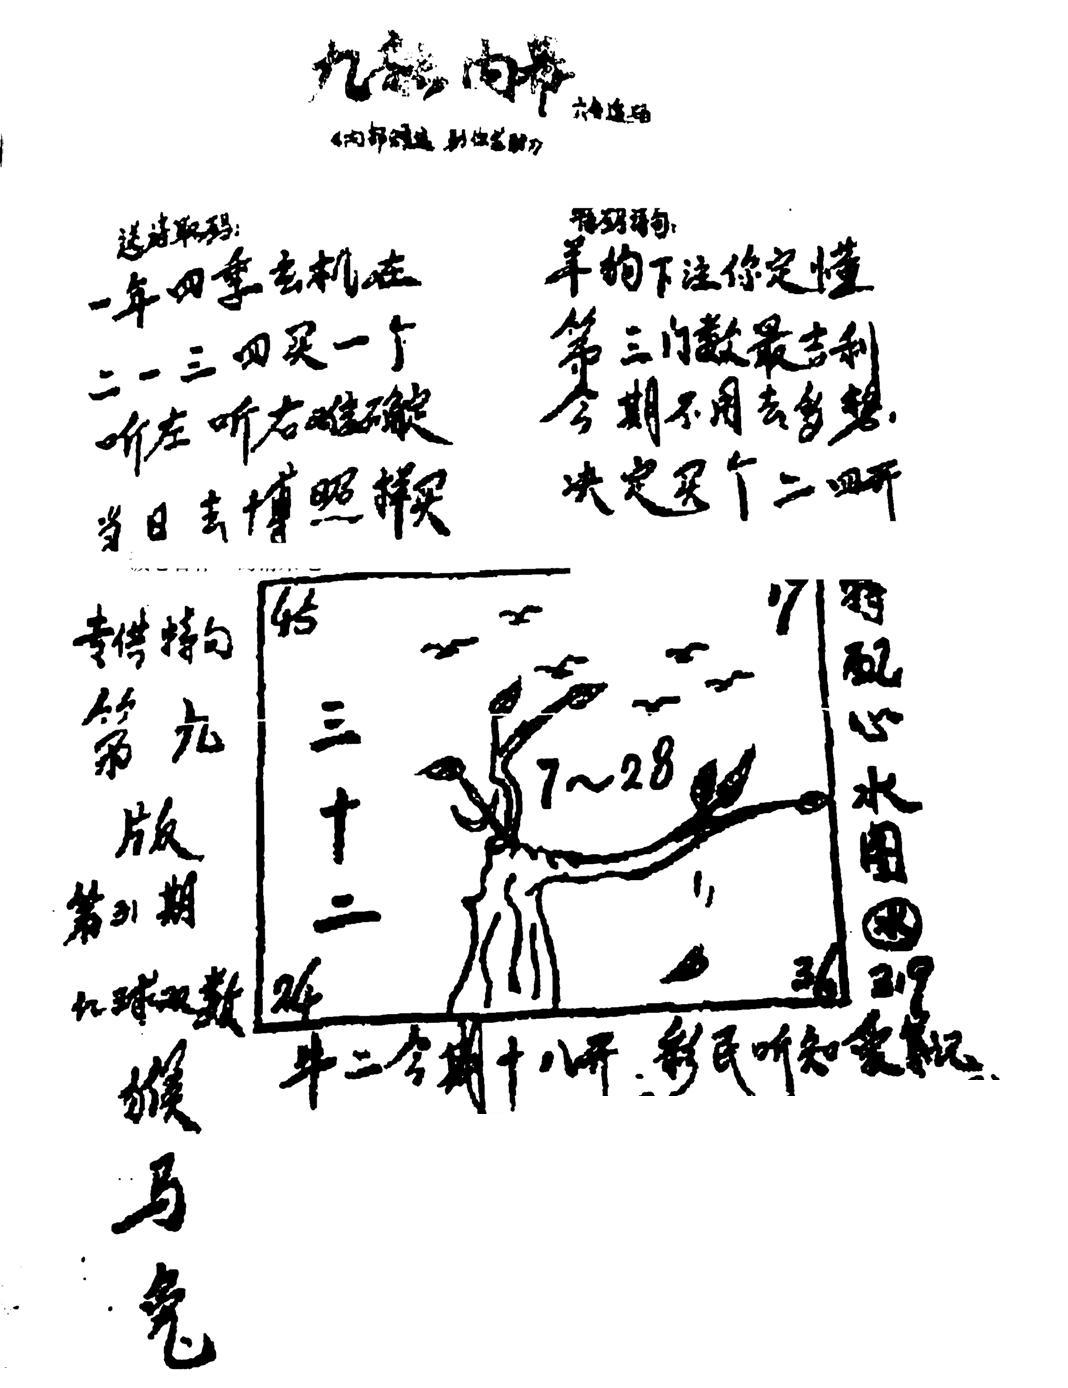 九龙内幕
送诗取码:
一年四季玄机在
二一三四买一个
听左听右难确定
当日去博照样买
特码诗句:
羊狗下注你定懂
第三门数最吉利
今期不用去多想.
决定买个二四开
专供特句
第九
版
第31期
九球双数
猴
马
兔
45
17
三十二
7～28
24
36
特配心水图
水
319
牛二今期十八开 彩民听知要笔记